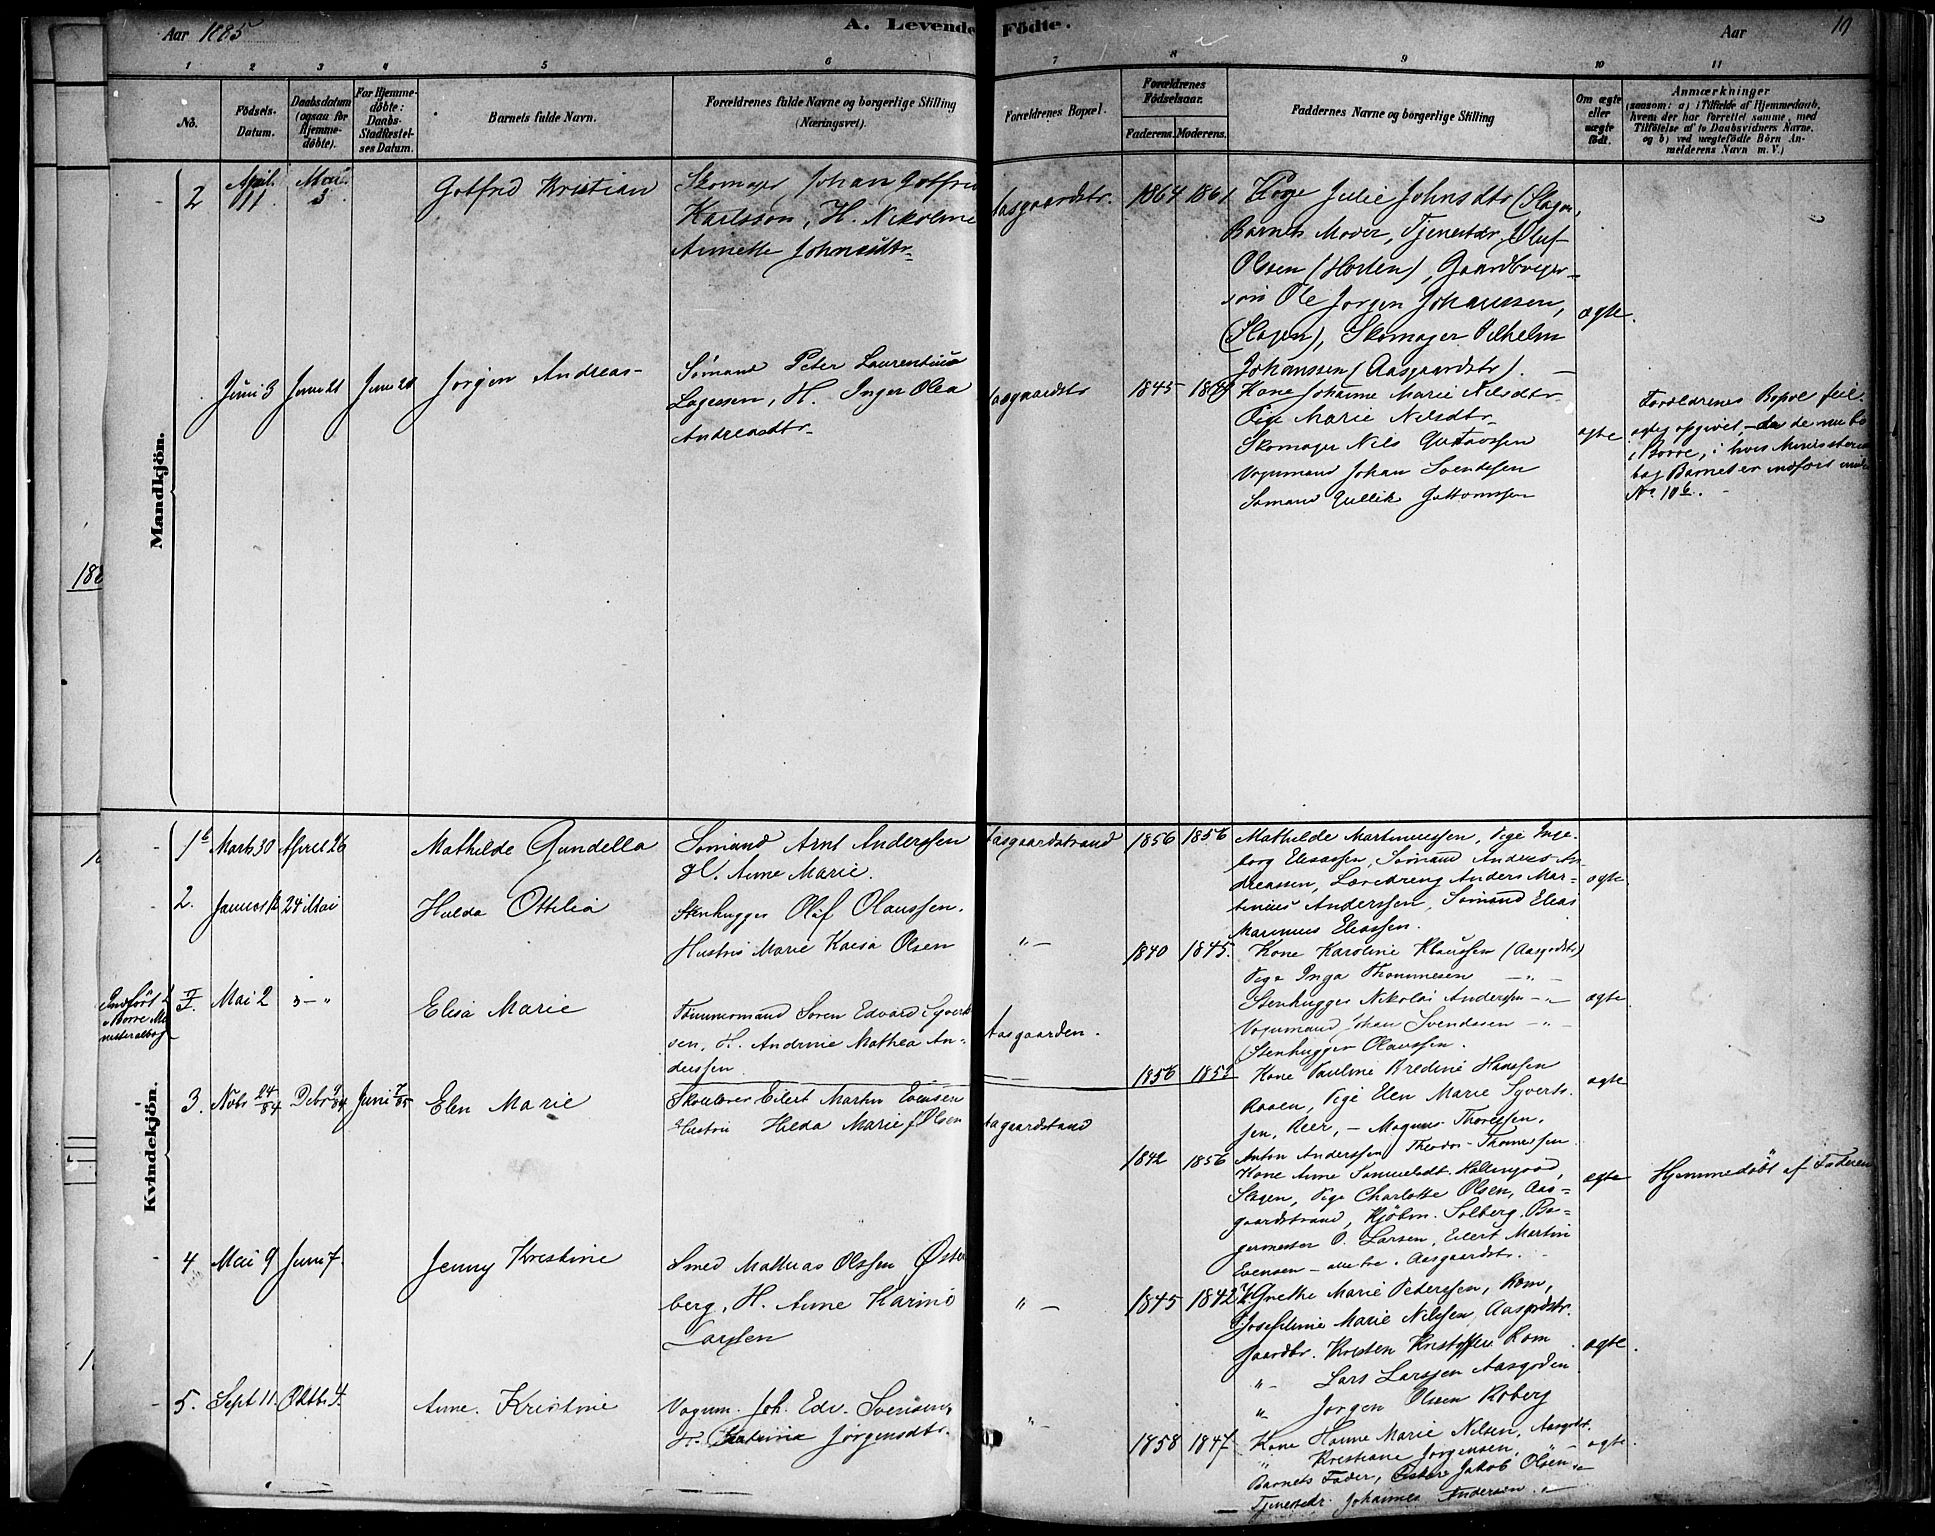 Aar 1885
A. Levende Fødte.
Aar
19
1 2 3 4 5 6 7 8 9 10 11
No.
Fødsels-Datum.
Daabsdatum (ogsaa for Hjemme-døbte).
For Hjemme-døbte: Daabs-Stadfæstel-ses Datum.
Barnets fulde Navn.
Forældrenes fulde Navne og borgerlige Stilling (Næringsvei).
Forældrenes Bopæl.
Forældrenes Fødselsaar.
Faderens. Moderens.
Faddernes Navne og borgerlige Stilling
Om ægte eller uægte født.
Anmærkninger
(saasom: a) i Tilfælde af Hjemmedaab,
hvem der har forrettet samme, med
Tilføielse af to Daabsvidners Navne.
og b) ved uægtefødte Børn An-
melderens Navn m. V.)
Mandkjön.
2 April 11 Mai 3 Gotfred Kristian
Skomager Johan Gotfred
Karlsson, H. Nikoline
Annette Johnsdtr.
Aasgaardstr. 1864 1861
Pige Julie Johnsdtr (Slagen,
Barnets Moder, Tjenestdr. Oluf
Olsen (Horten), Gaardbruger-
søn Ole Jørgen Johannsen,
(Slagen), Skomager Vilhelm
Johanssen (Aasgaardstr).
ægte.
Juni 3 Juni 21 Juni 21 Jørgen Andreas
Sømand Peter Laurentius
Lagesen, H. Inger Olea
Andreasdtr.
Aasgaardstr 1845
Kone Johanne Marie Nilsdtr
Pige Marie Nilsdtr
Skomager Nils Gustavssen
Vognmand Johan Svendssen
Sømand Gullik Guttormssen
ægte
Forældrenes Bopæl feil-
agtig opgivet, da de nu bo
i Borre, i hvis Ministerial-
bog Barnet er indført under
No. 10 b.
Kvindekjön.
1 b Marts 30 April 26 Mathilde Gundella
Sømand Arnt Anderssen
H. Anne Marie.
Aasgaardstrand 1856 1856
Mathilde Martinussen, Pige Inge-
borg Eliassen, Sømand Anders An-
dreassen, Læredreng Anders Mar-
tinius Anderssen, Sømand Elias
Marinius Eliassen.
ægte.
2. Januar 12 24 Mai Hulda Ottilia
Stenhugger Olaf Olaussen.
Hustru Marie Kaisa Olsen
" — 1840 1845.
Kone Karoline Klaussen (Aasgrdstr)
Pige Inga Thommesen —"—
Stenhugger Nikolai Andersen —"
Vognmand Johan Svendssen —"—
Stenhugger Olaussen.
ægte
Indført i
Borre Mi-
nisterialbog
Mai 2 3 — " Elisa Marie
Tømmermand Søren Edvard Syvert-
sen, H. Andrine Mathea An-
derssen
Aasgaarden. 1856 1852
Kone Pauline Bredine Hanssen
Raaen, Pige Elen Marie Syverts-
sen, Reer, — Magnus Thoressen,
Anton Anderssen, Theodor Thomessen
ægte
3. Novbr 24/84 Debr 9/84 Juni 7/85 Elen Marie
Skolelærer Eilert Martin Evensen
Hustru Hilda Marie f. Olsen
Aagaardstrand 1842 1856
Kone Anne Samuelsdt. Hallingrød,
Slagen, Pige Charlotte Olsen, Aas-
gaardstrand, Kjøbm. Solberg, Bor-
germester O. Larsen, Eilert Martin
Evensen — alle tre i Aasgaardstr.
ægte
Hjemmedøbt af Faderen
4 Mai 9 Juni 7. Jenny Kristine
Smed Mathias Olssen Øster-
berg, H. Anne Karine
Larssen
" — 1845 1842
Grethe Marie Petersen, Rom,
Josefine Marie Nilssen, Aasgrdstr.
Gaardbr. Kristen Kristoffer. Rom
" Lars Larssen Aasgrden
" Jørgen Olsen Roberg
ægte
5. Sept 11. Oktbr 4. Anne Kristine
Vognm. Joh. Edv. Svensen,
H. Katrine Jørgensdtr.
" — 1858 1847
Kone Hanne Marie Nilsen, Aasgrdst.
" Kristiane Jørgensen, "
Barnets Fader, Jakob Olsen "
Tjenestedr. Johannes Andersen "
ægte.